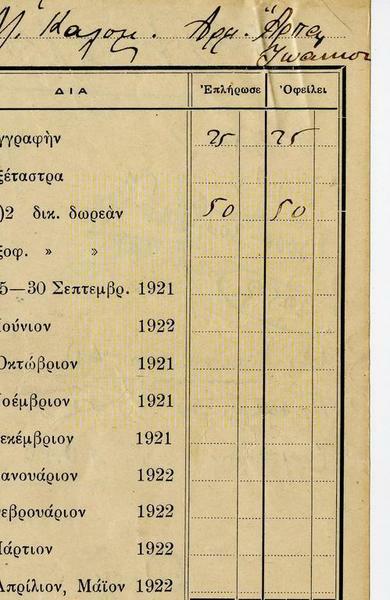 Καλομ.
ΔΙΑ Ἐπλήρωσε Ὀφείλει
γγραφὴν 25 25
ξέταστρα
)2 δικ. δωρεὰν 50 50
ξοφ. » »
5—30 Σεπτεμβρ. 1921
Ἰούνιον 1922
Ὀκτώβριον 1921
Νοέμβριον 1921
εκέμβριον 1921
ανουάριον 1922
εβρουάριον 1922
Μάρτιον 1922
Ἀπρίλιον, Μάϊον 1922